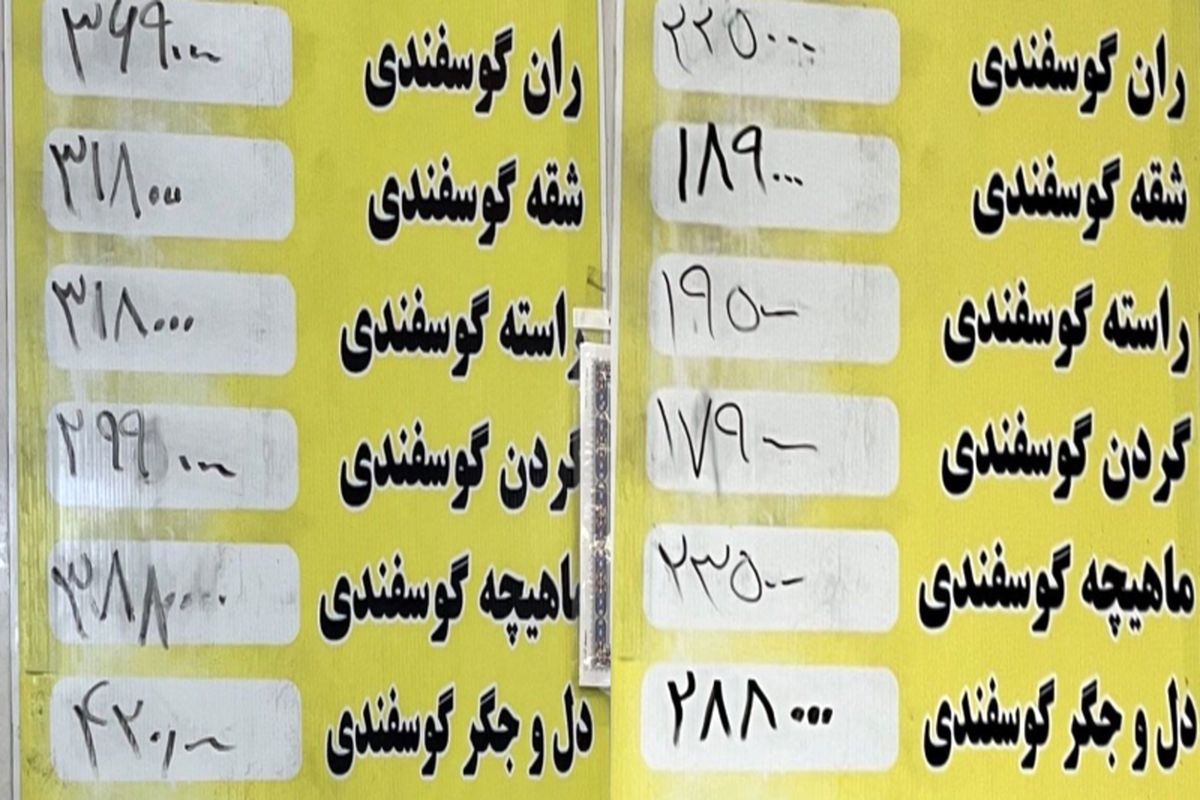 ران گوسفندی ۲۲۵۰۰۰
شقه گوسفندی ۱۸۹۰۰۰
راسته گوسفندی ۱۹۵۰۰
گردن گوسفندی ۱۷۹۰۰
ماهیچه گوسفندی ۲۳۵۰۰۰
دل و جگر گوسفندی ۲۸۸۰۰۰
ران گوسفندی ۳۶۹۰۰۰
شقه گوسفندی ۳۱۸۰۰۰
راسته گوسفندی ۳۱۸۰۰۰
گردن گوسفندی ۲۹۹۰۰۰
ماهیچه گوسفندی ۳۸۸۰۰۰
دل و جگر گوسفندی ۴۲۰۰۰۰